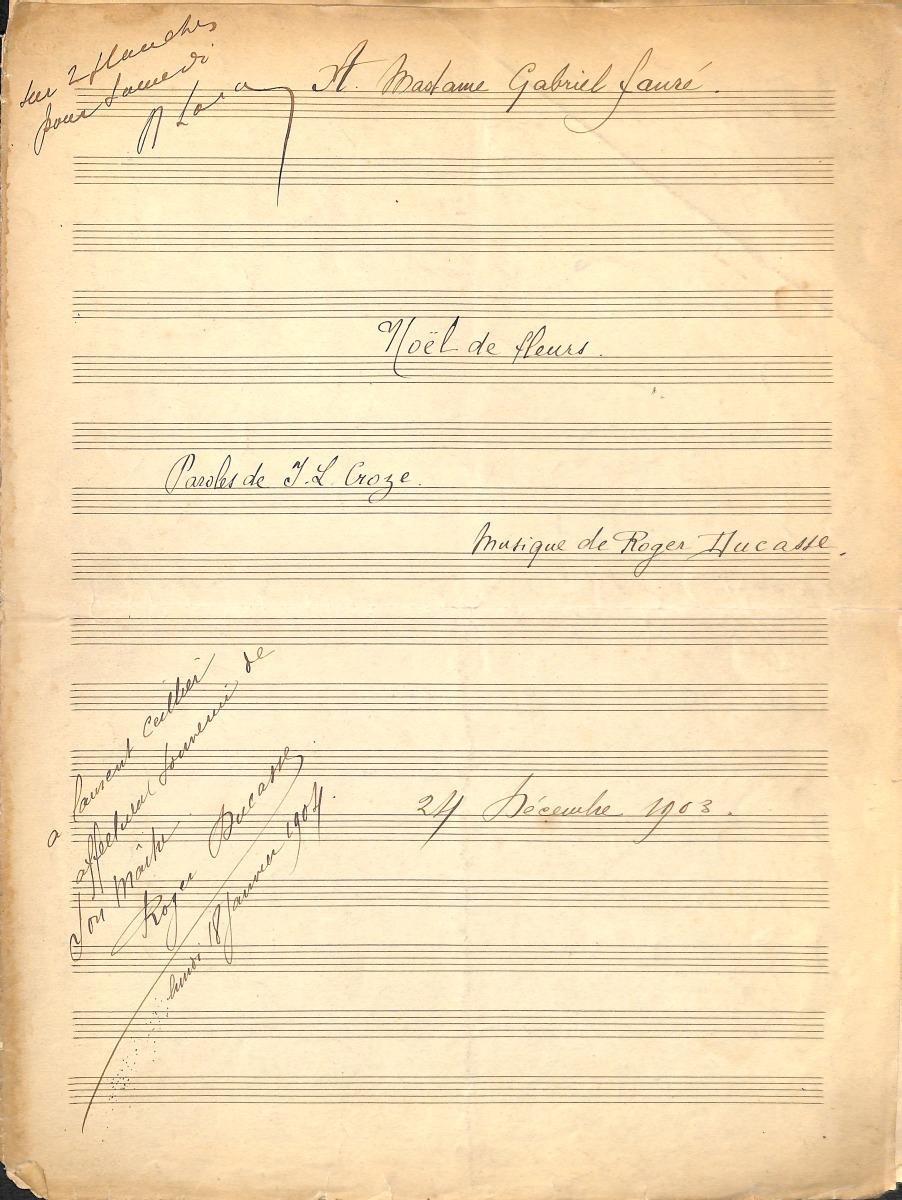 sur 2 planches
pour Samedi
A Madame Gabriel Fauré.
Noël de fleurs.
Paroles de J. L. Croze.
Musique de Roger Ducasse.
24 Décembre 1903.
a Laurent Ceillier
affectueux souvenir de
son Maître
Roger Ducasse
lundi 18 Janvier 1904.